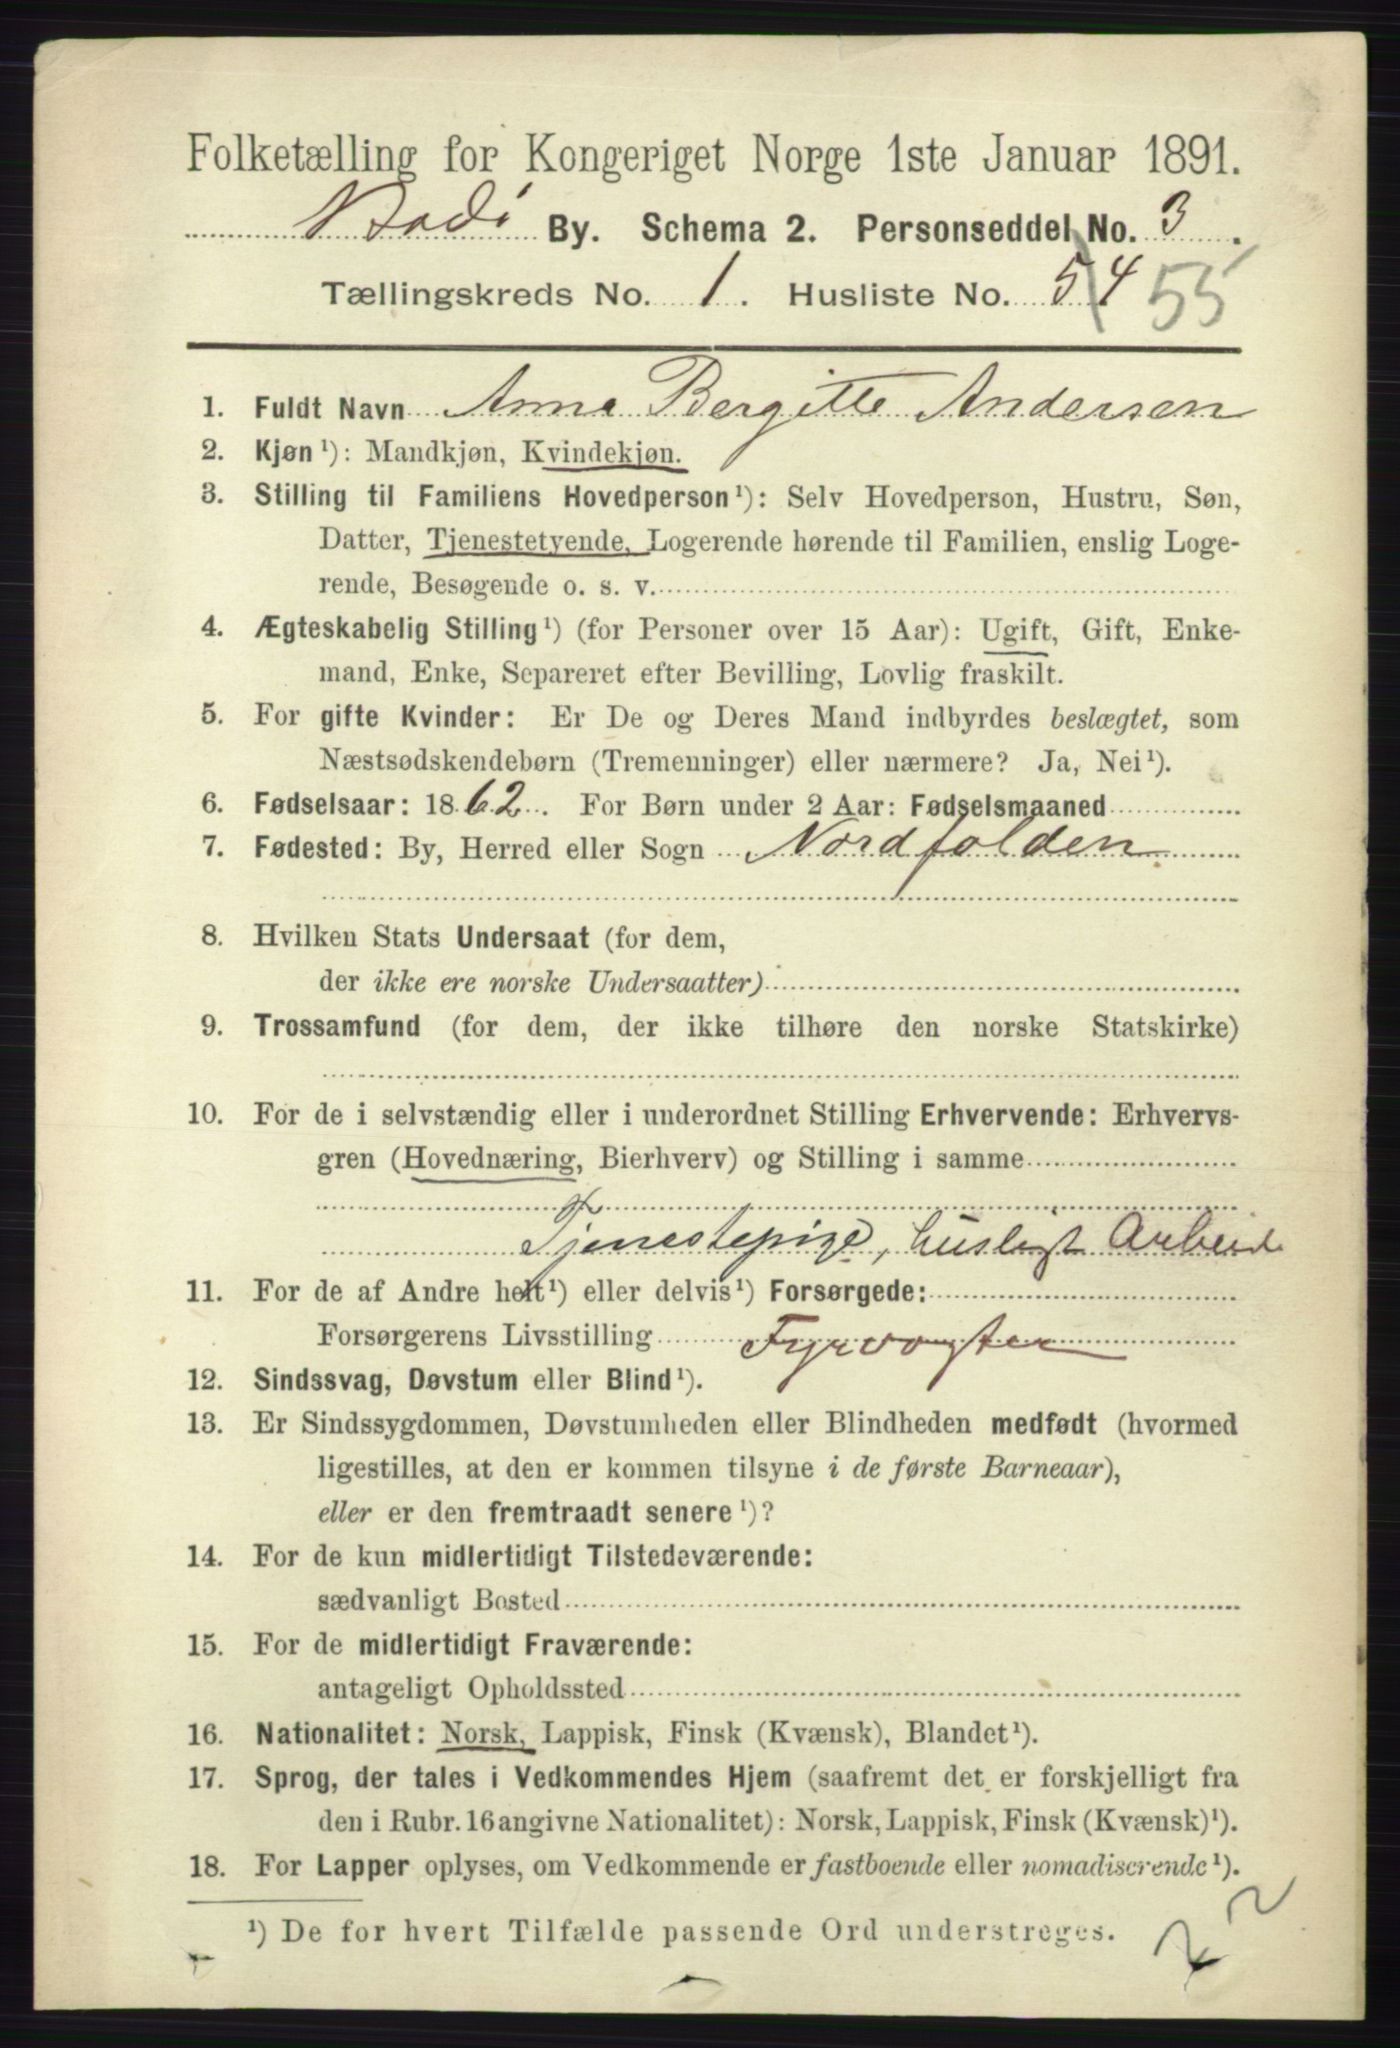 Folketælling for Kongeriget Norge 1ste Januar 1891.
Bodö By. Schema 2. Personseddel No. 3.
Tællingskreds No. 1. Husliste No. 54 55
1. Fuldt Navn Anna Bergitte Andersen
2. Kjøn¹): Mandkjøn, Kvindekjøn.
3. Stilling til Familiens Hovedperson¹): Selv Hovedperson, Hustru, Søn,
Datter, Tjenestetyende, Logerende hørende til Familien, enslig Loge-
rende, Besøgende o. s. v.
4. Ægteskabelig Stilling¹) (for Personer over 15 Aar): Ugift, Gift, Enke-
mand, Enke, Separeret efter Bevilling, Lovlig fraskilt.
5. For gifte Kvinder: Er De og Deres Mand indbyrdes beslægtet, som
Næstsødskendebørn (Tremenninger) eller nærmere? Ja, Nei¹).
6. Fødselsaar: 1862. For Børn under 2 Aar: Fødselsmaaned
7. Fødested: By, Herred eller Sogn Nordfolden
8. Hvilken Stats Undersaat (for dem,
der ikke ere norske Undersaatter)
9. Trossamfund (for dem, der ikke tilhøre den norske Statskirke)
10. For de i selvstændig eller i underordnet Stilling Erhvervende: Erhvervs-
gren (Hovednæring, Bierhverv) og Stilling i samme
Tjenestepige, husligt Arbeid
11. For de af Andre helt¹) eller delvis¹) Forsørgede:
Forsørgerens Livsstilling Fyrvogter
12. Sindssvag, Døvstum eller Blind¹).
13. Er Sindssygdommen, Døvstumheden eller Blindheden medfødt (hvormed
ligestilles, at den er kommen tilsyne i de første Barneaar),
eller er den fremtraadt senere¹)?
14. For de kun midlertidigt Tilstedeværende:
sædvanligt Bosted
15. For de midlertidigt Fraværende:
antageligt Opholdssted
16. Nationalitet: Norsk, Lappisk, Finsk (Kvænsk), Blandet¹).
17. Sprog, der tales i Vedkommendes Hjem (saafremt det er forskjelligt fra
den i Rubr. 16 angivne Nationalitet): Norsk, Lappisk, Finsk (Kvænsk)¹).
18. For Lapper oplyses, om Vedkommende er fastboende eller nomadiserende¹).
¹) De for hvert Tilfælde passende Ord understreges.